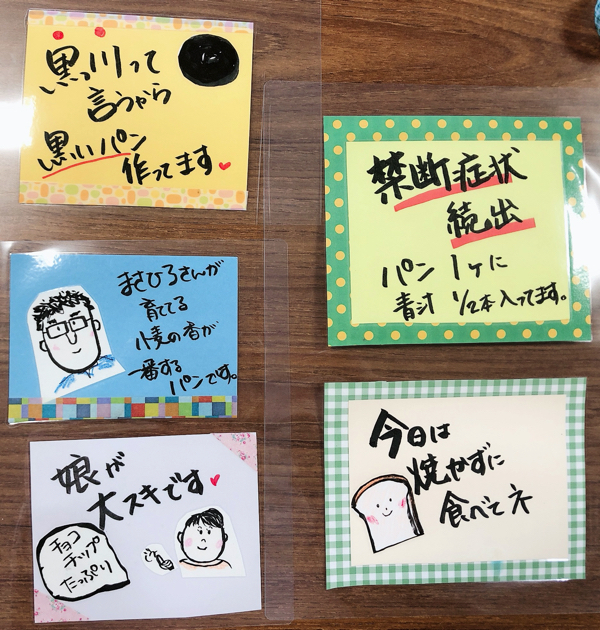 黒っ川って
言うから
黒いパン
作ってます
禁断症状
続出
パン1ヶに
青汁1/2本入ってます。
まさひろさんが
育ててる
小麦の香が
一番する
パンです。
今日は
焼かずに
食べてネ
娘が
大スキです
チョコ
チップ
たっぷり